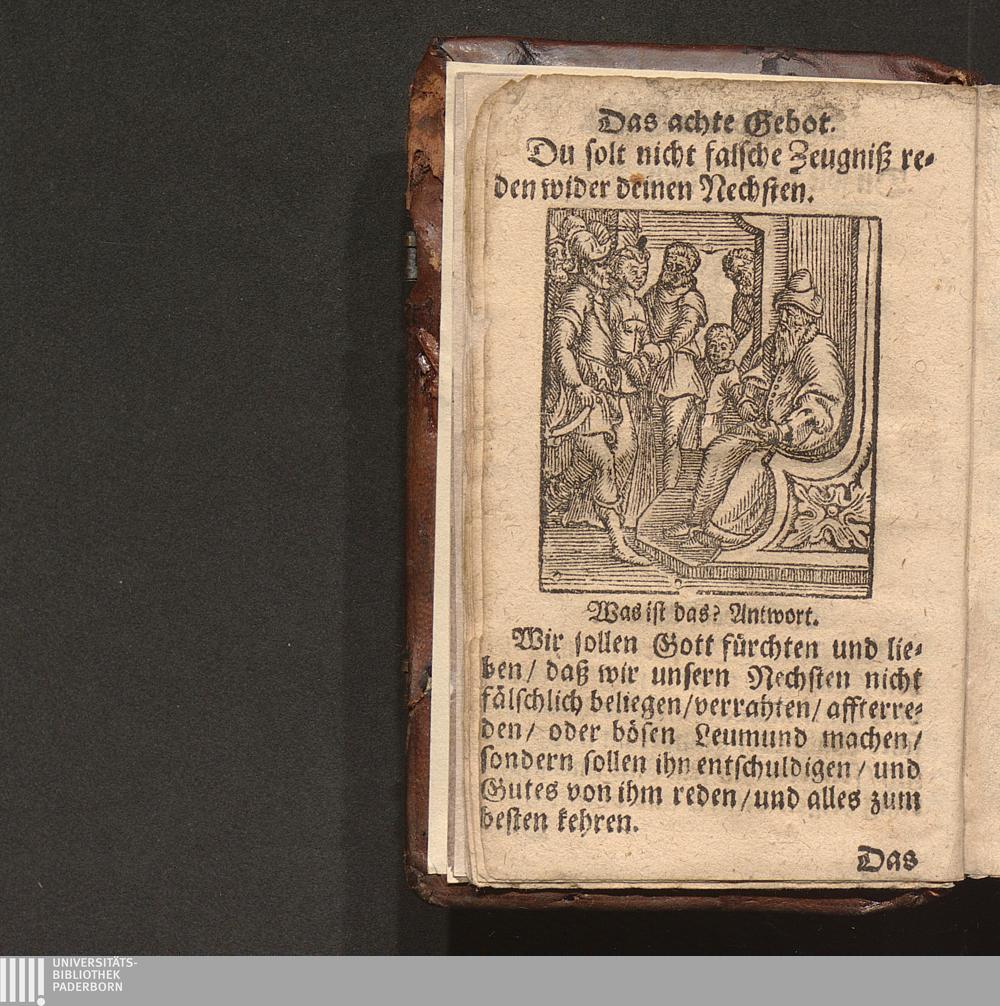 Das achte Gebot.
Du solt nicht falsche Zeugniß re⸗
den wider deinen Nechsten.
Was ist das? Antwort.
Wir sollen Gott fürchten und lie⸗
ben/ daß wir unsern Nechsten nicht
fälschlich beliegen/verrahten/ affterre⸗
den/ oder bösen Leumund machen/
sondern sollen ihn entschuldigen/ und
Gutes von ihm reden/und alles zum
besten kehren.
Das
UNIVERSITÄTS-
BIBLIOTHEK
PADERBORN